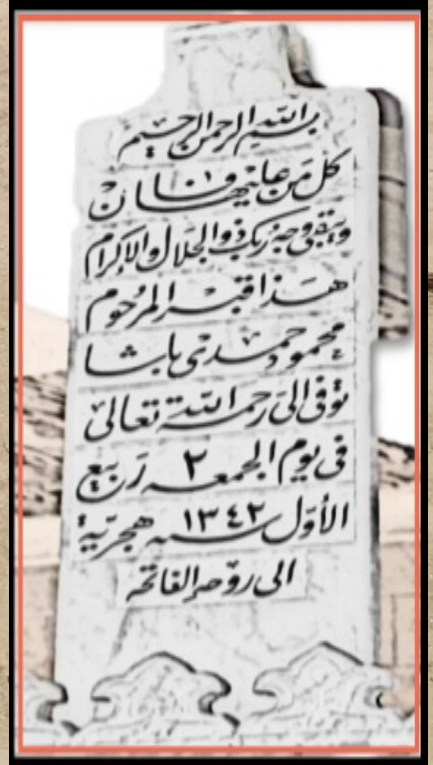 بسم الله الرحمن الرحيم
كل من عليها فان
ويبقى وجه ربك ذو الجلال والإكرام
هذا قبر المرحوم
محمود حمدي باشا
توفى الى رحمة الله تعالى
فى يوم الجمعه ٢ ربيع
الأول سنه ١٣٤٢ هجرية
الى روحه الفاتحه